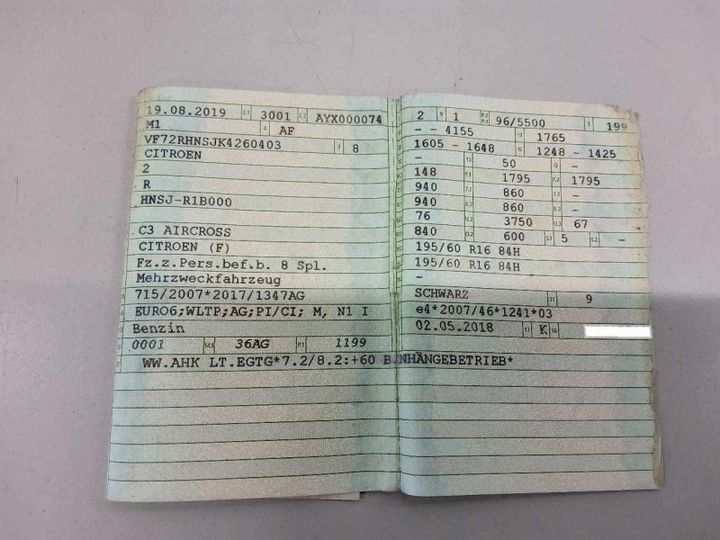 19.08.2019 2.1 3001 2.2 AYX000074
M1 4 AF
VF72RHNSJK4260403 3 8
CITROEN
2
R
HNSJ-R1B000
C3 AIRCROSS
CITROEN (F)
Fz.z.Pers.bef.b. 8 Spl.
Mehrzweckfahrzeug
715/2007*2017/1347AG
EURO6;WLTP;AG;PI/CI; M, N1 I
Benzin
0001 36AG P.1 1199
WW.AHK LT.EGTG*7.2/8.2:+60 B. NHÄNGEBETRIEB*
2 9 1 P.2 P.4 96/5500 T 199
- - 4155 1765
1605 - 1648 G 1248 - 1425
- 13 50 Q -
148 1795 F.2 1795
940 860 -
940 860 -
76 3750 67
840 600 S.1 5 S.2 -
195/60 R16 84H
195/60 R16 84H
-
SCHWARZ 11 9
e4*2007/46*1241*03
02.05.2018 17 K 16